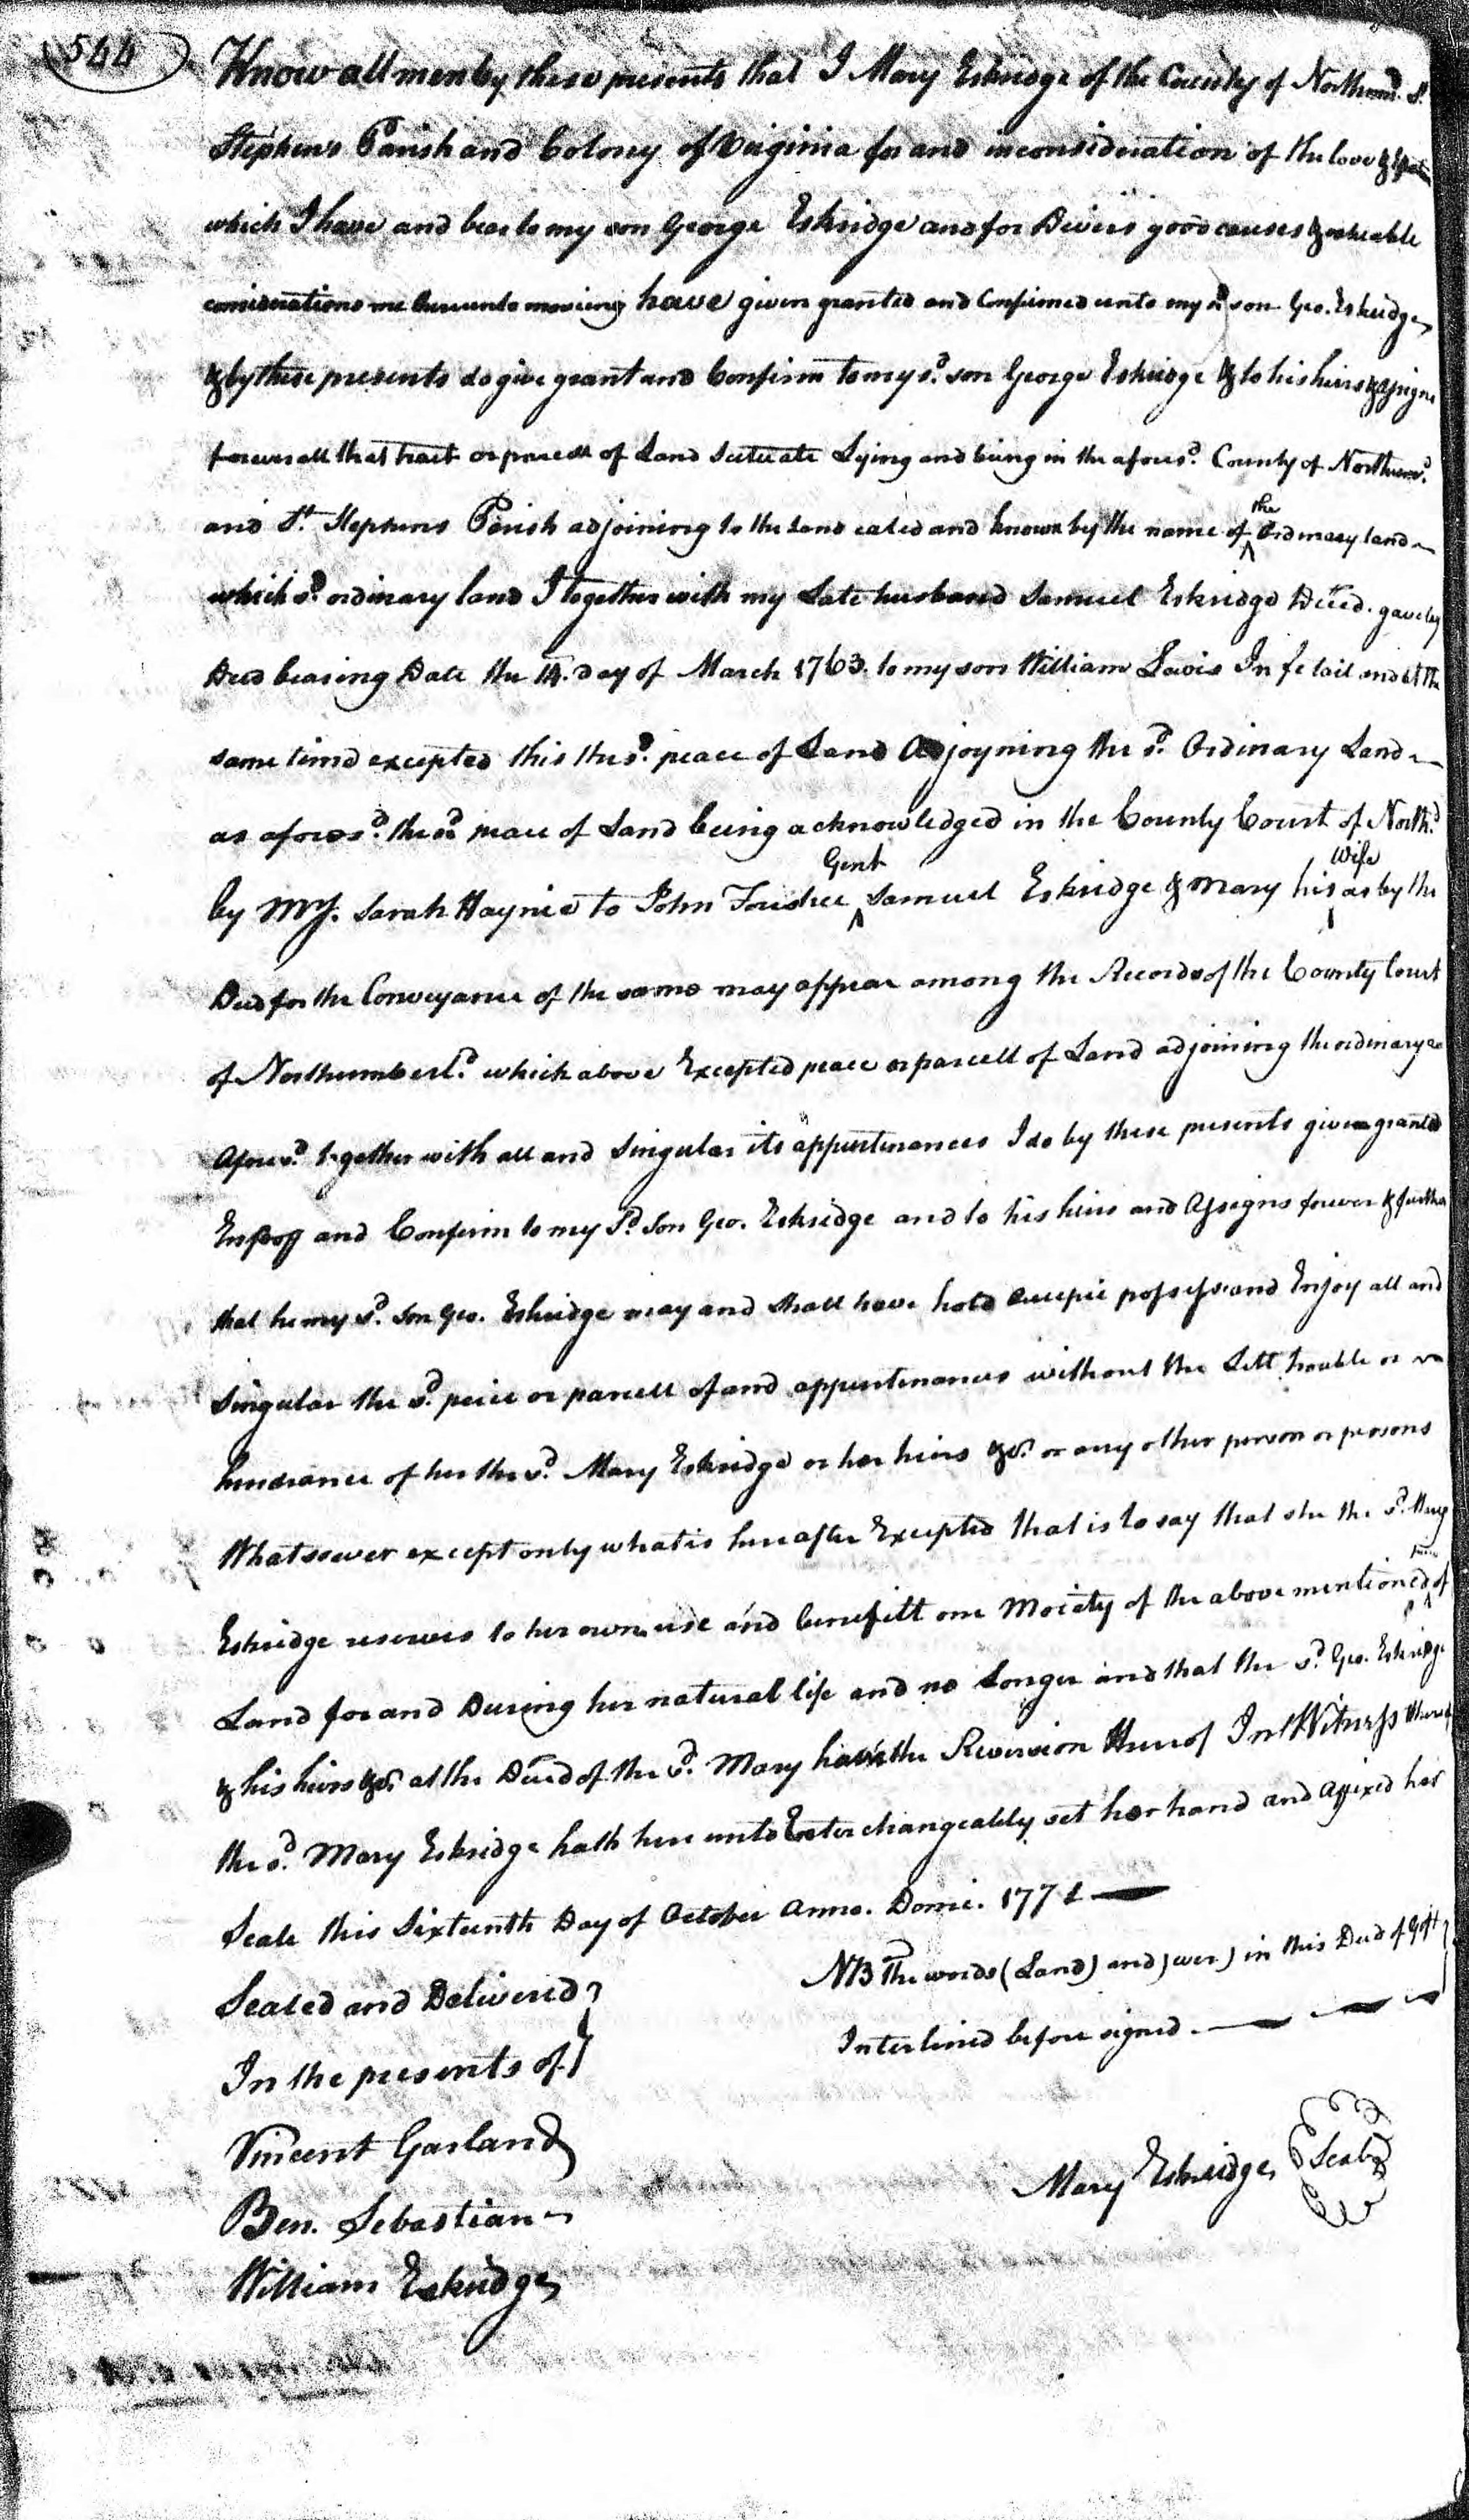 544
Know all men by these presents that I Mary Eskridge of the County of Northumd. St.
Stephens Parish and Colony of Virginia for and in consideration of the love &
which I have and bear to my son George Eskridge and for Divers good causes & valueable
considerations me thereunto moving have given granted and Confirmed unto my sd. son Geo. Eskridge
& by these presents do give grant and Confirm to my sd. son George Eskridge & to his heirs & assigns
forever all that tract or parcell of Land Scituate Lying and being in the aforesd. County of Northumd.
and St. Stephens Parish adjoining to the Land caled and known by the name of the Ordinary land
which sd. ordinary land I together with my Late husband Samuel Eskridge Deced. gave by
Deed bearing Date the 14. day of March 1763. to my son William Lewis In fe tail and at the
same time excepted this the sd. peace of Land Adjoyning the sd. Ordinary Land
as aforesd. the sd. peace of Land being acknowledged in the County Court of Northd.
by Mrs. Sarah Haynie to John Foushee Gent Samuel Eskridge & Mary his Wife as by the
Deed for the Conveyance of the same may appear among the Records of the County Court
of Northumberld. which above Excepted peace or parcell of Land adjoining the ordinary as
Aforesd. together with all and Singular its appurtenances I do by these presents given granted
Enfeof and Confirm to my Sd. Son Geo. Eskridge and to his heirs and Assigns forever & further
that he my sd. Son Geo. Eskridge may and shall have hold occupie possess and Enjoy all and
Singular the sd. peice or parcell of and appurtenances without the Lett trouble or
hinderance of her the sd. Mary Eskridge or her heirs &c. or any other person or persons
Whatsoever except only what is hereafter Excepted that is to say that she the sd. Mary
Eskridge reserves to her own use and benefitt one Moiety of the above mentioned of
Land for and During her natural life and no Longer and that the sd. Geo. Eskridge
& his heirs &c. at the Deced of the sd. Mary have the Reversion thereof In Witness thereof
the sd. Mary Eskridge hath here unto Enterchangeably set her hand and affixed her
Seale this Sixteenth Day of October Anno. Domi. 1771
NB The words (Land) and) wer) in this Deed of Gift
Interlined before signed.
Sealed and Delivered
In the presents of
Vincent Garland
Ben. Sebastian
William Eskridge
Mary Eskridge Seal